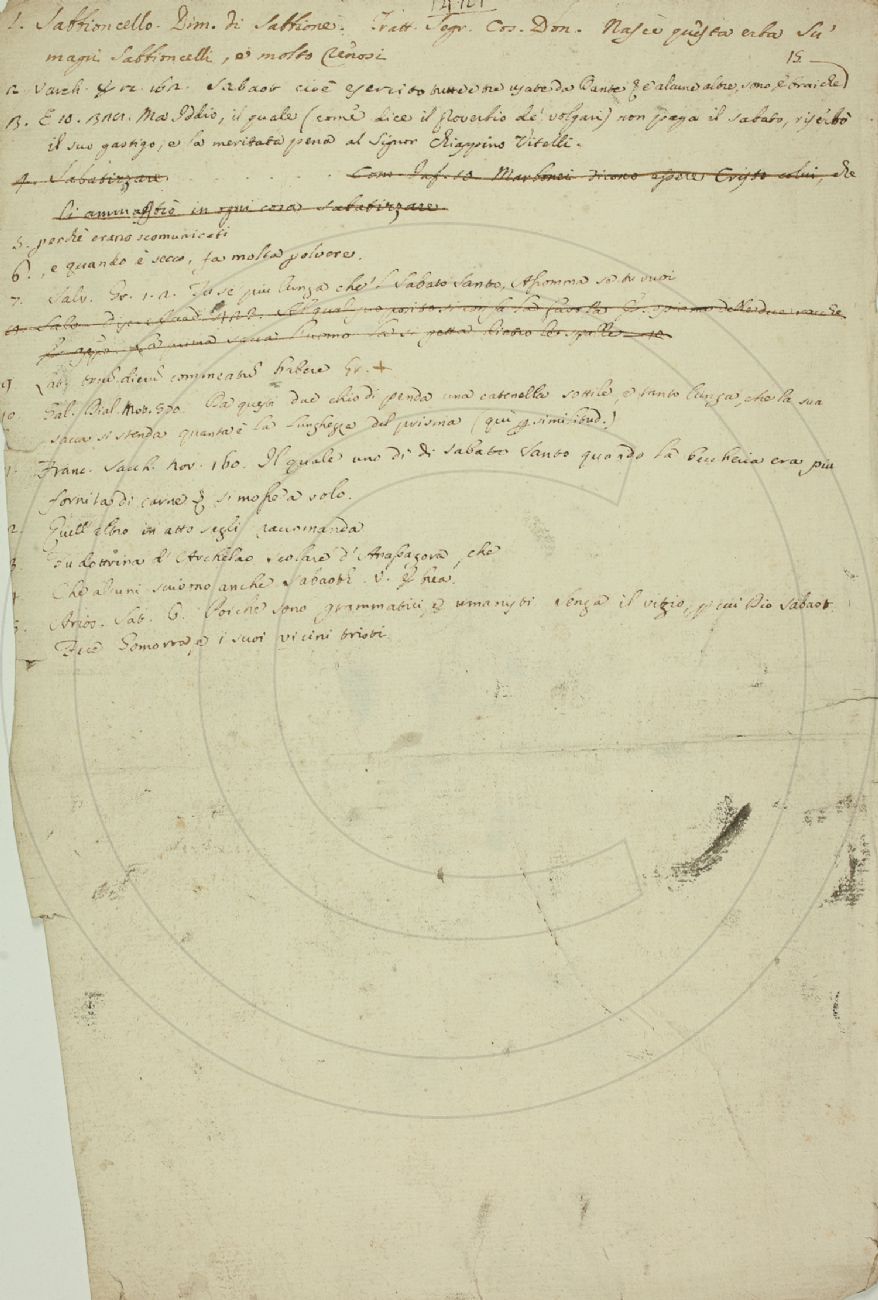 1. Sabbioncello. Dim. di Sabbione. Tratt. Segr. Cos. Don. Nasce questa erba su'
magri sabbioncelli, e molto renosi
15
2. Varch. 12. Sabaot cioè esercito tutte e tre usate da Dante e alcune altre, sono ebraiche
3. E 10. Ma Iddio, il quale (come dice il proverbio de' volgari) non paga il sabato, riserbò
il suo gastigo, e la meritata pena al Signor Chiappino Vitelli.
4. Sabatizzare . . . . . . Com. Inf. 10 dicono essere Cristo colui, che
li in ogni cosa sabatizzare
5. perchè erano scomunicati
6. , e quando è secco, fa molta polvere.
7. Salv. Gr. 1. 2. Tu se' più lunga che 'l Sabato Santo, Assomma sa tu vuoi
la favola delle due vacche
l'uomo la si getta dietro le spalle
9 commeatum habere Gr. +
10. Gal. Dial. Mot. 570. Da questi due chiodi penda una catenella sottile, e tanto lunga, che la sua
sacca si stenda quanta è la lunghezza del prisma (qui similitud.)
1. Franc. Sacch. nov. 160. Il quale uno dì di sabato santo quando la beccheria era più
fornita di carne si mosse a volo.
2. Quell' altro in atto segli raccomanda
3 Fu dottrina d' Archelao scolare d' Anassagora, che
4 Che alcuni scivono anche Sabaoth. V. hea.
5. Arios. Sat. 6. Poichè sono grammatici, e umanisti senza il vizio, p cui Dio Sabaot
Fece Gomorra e i suoi vicini tristi